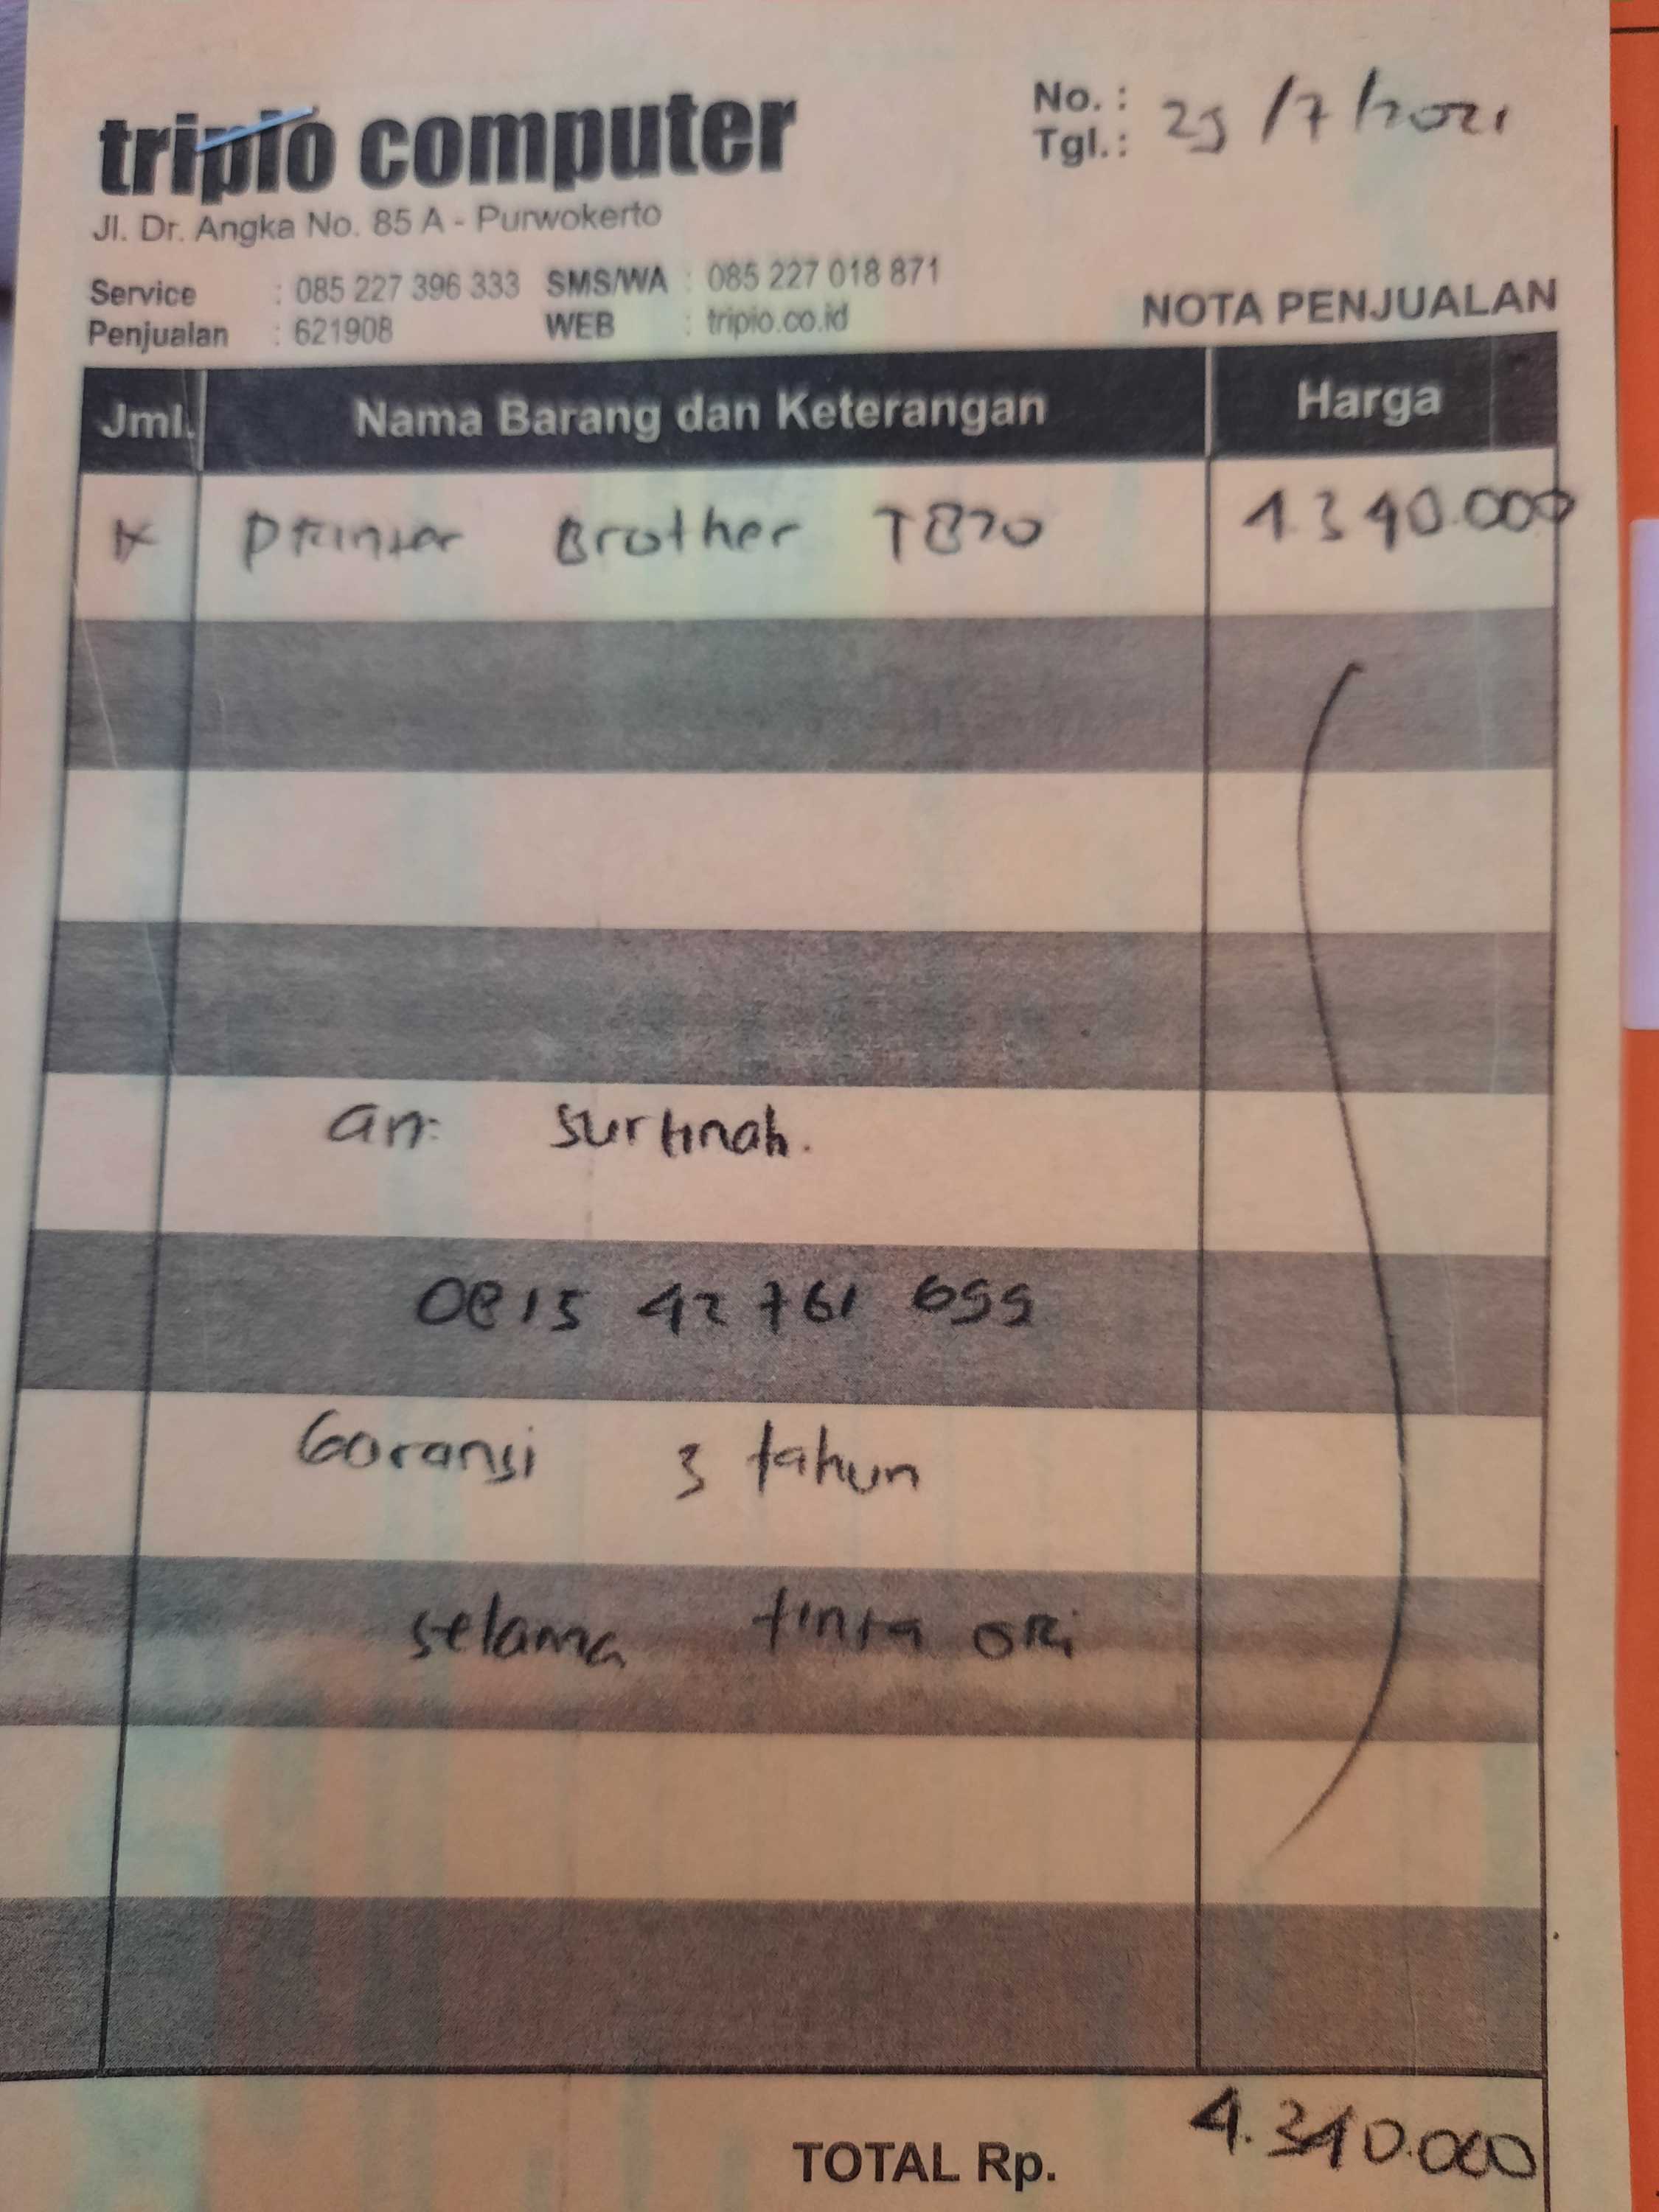 tripio computer
No. :
Tgl. : 29/7/2021
Jl. Dr. Angka No. 85 A - Purwokerto
Service : 085 227 396 333 SMS/WA : 085 227 018 871
Penjualan : 621908 WEB : tripio.co.id
NOTA PENJUALAN
Jml. Nama Barang dan Keterangan Harga
Printer Brother T820 4.340.000
an: surtinah.
0815 42 761 699
Garansi 3 tahun
selama tinta ori
TOTAL Rp. 4.340.000